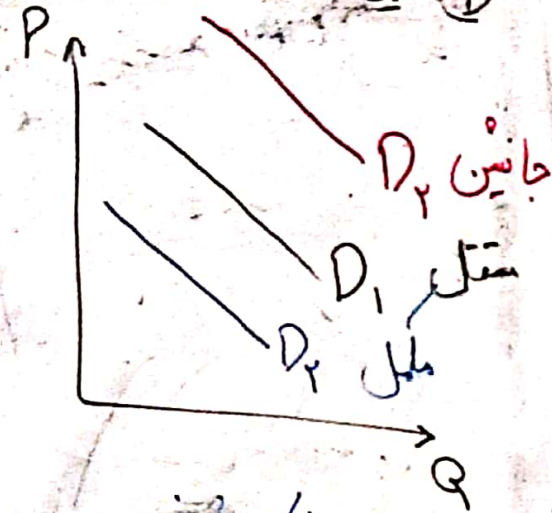 P
D۲ جانشین
D۱ مستقل
D۲ مکمل
Q